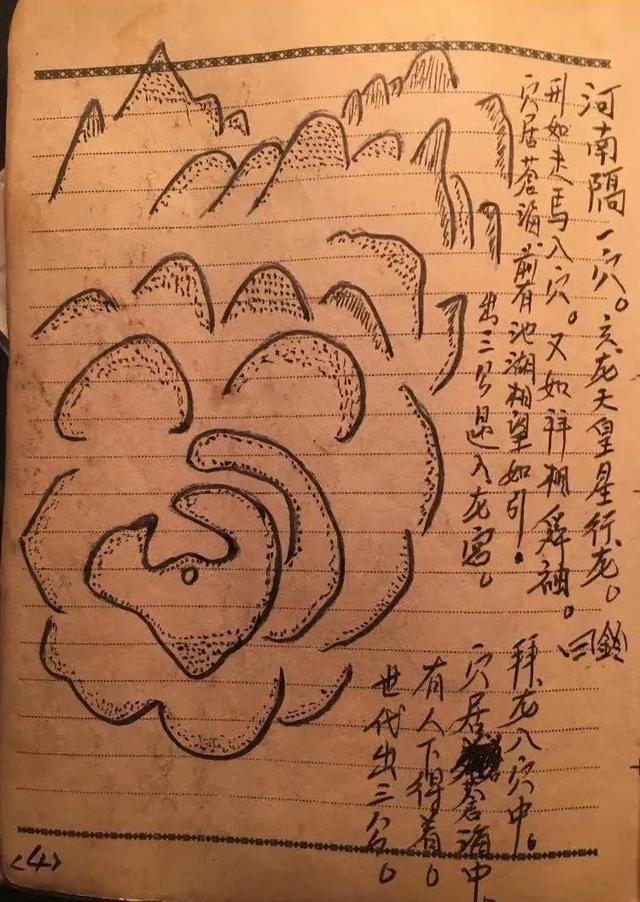 河南隔一穴。亥龙天皇星行龙。
形如走馬入穴。又如舞袖。
穴居蒼海.前有池湖相望如引.
出三公入龙宫。
鈴曰
拜龙入穴中。
穴居蒼海中。
有人下得着。
世代出三公。
<4>